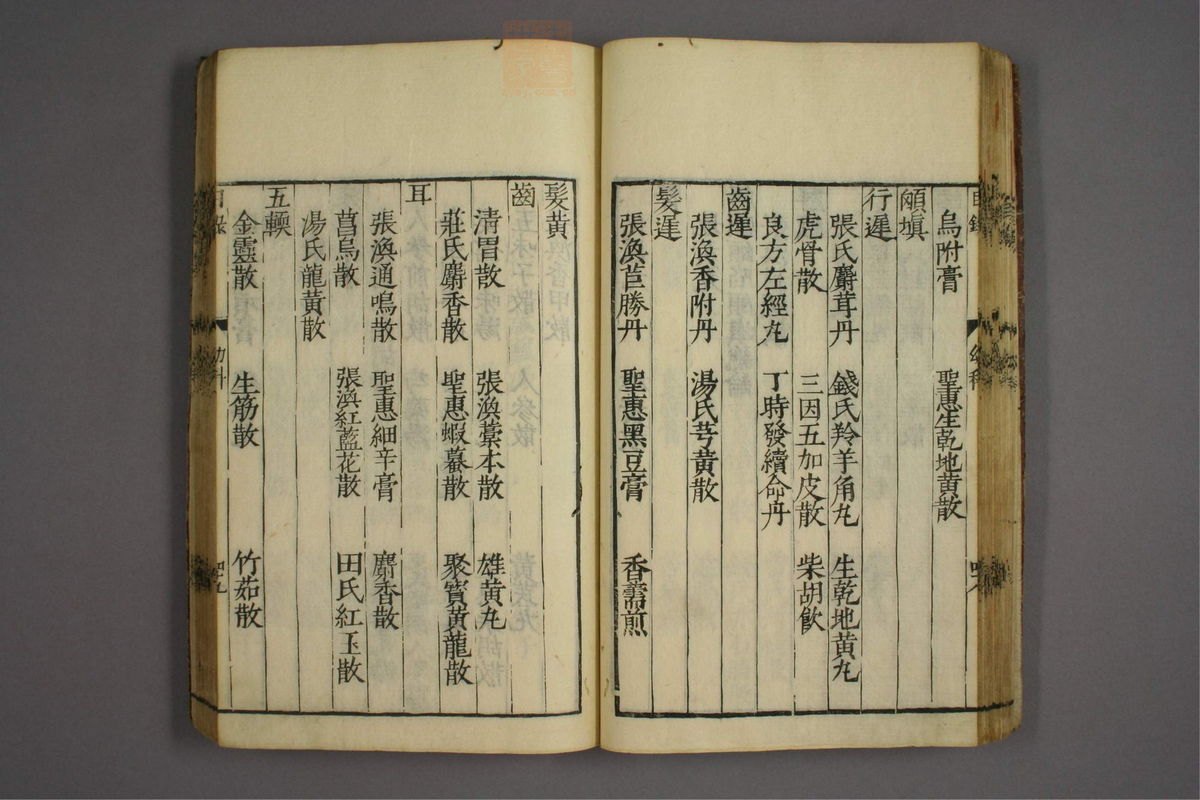 烏附膏 聖惠生乾地黄散
頄塡
行遲
張氏麝茸丹 錢氏羚羊角丸 生乾地黄丸
虎骨散 三因五加皮散 柴胡飲
良方左經丸 丁時發續命丹
齒遲
張渙香附丹 湯氏芎黄散
髮遲
張渙苣勝丹 聖惠黑豆膏 香薷煎
髮黄
齒
清胃散 張渙藁本散 雄黄丸
莊氏麝香散 聖惠蝦蟇散 聚寳黄龍散
耳
張渙通鳴散 聖惠細辛膏 麝香散
菖烏散 張渙紅藍花散 田氏紅玉散
湯氏龍黄散
五軟
金靈散 生筋散 竹茹散
目録 幼科